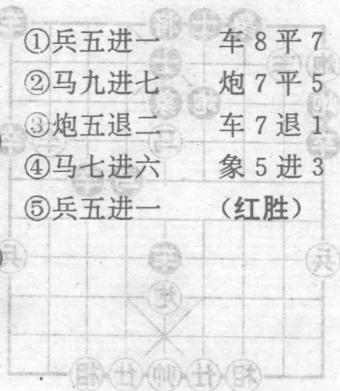 ①兵五进一 车8平7
②马九进七 炮7平5
③炮五退二 车7退1
④马七进六 象5进3
⑤兵五进一 （红胜）